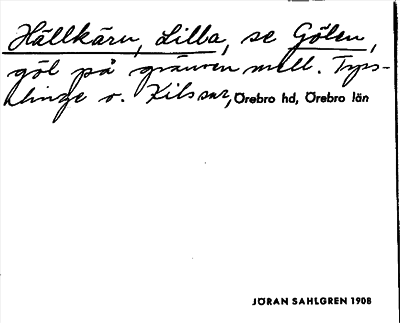 Hällkärn, Lilla, se Gölen,
göl på gränsen mell. Tys-
slinge o. Kils snr, Örebro hd, Örebro län
JÖRAN SAHLGREN 1908